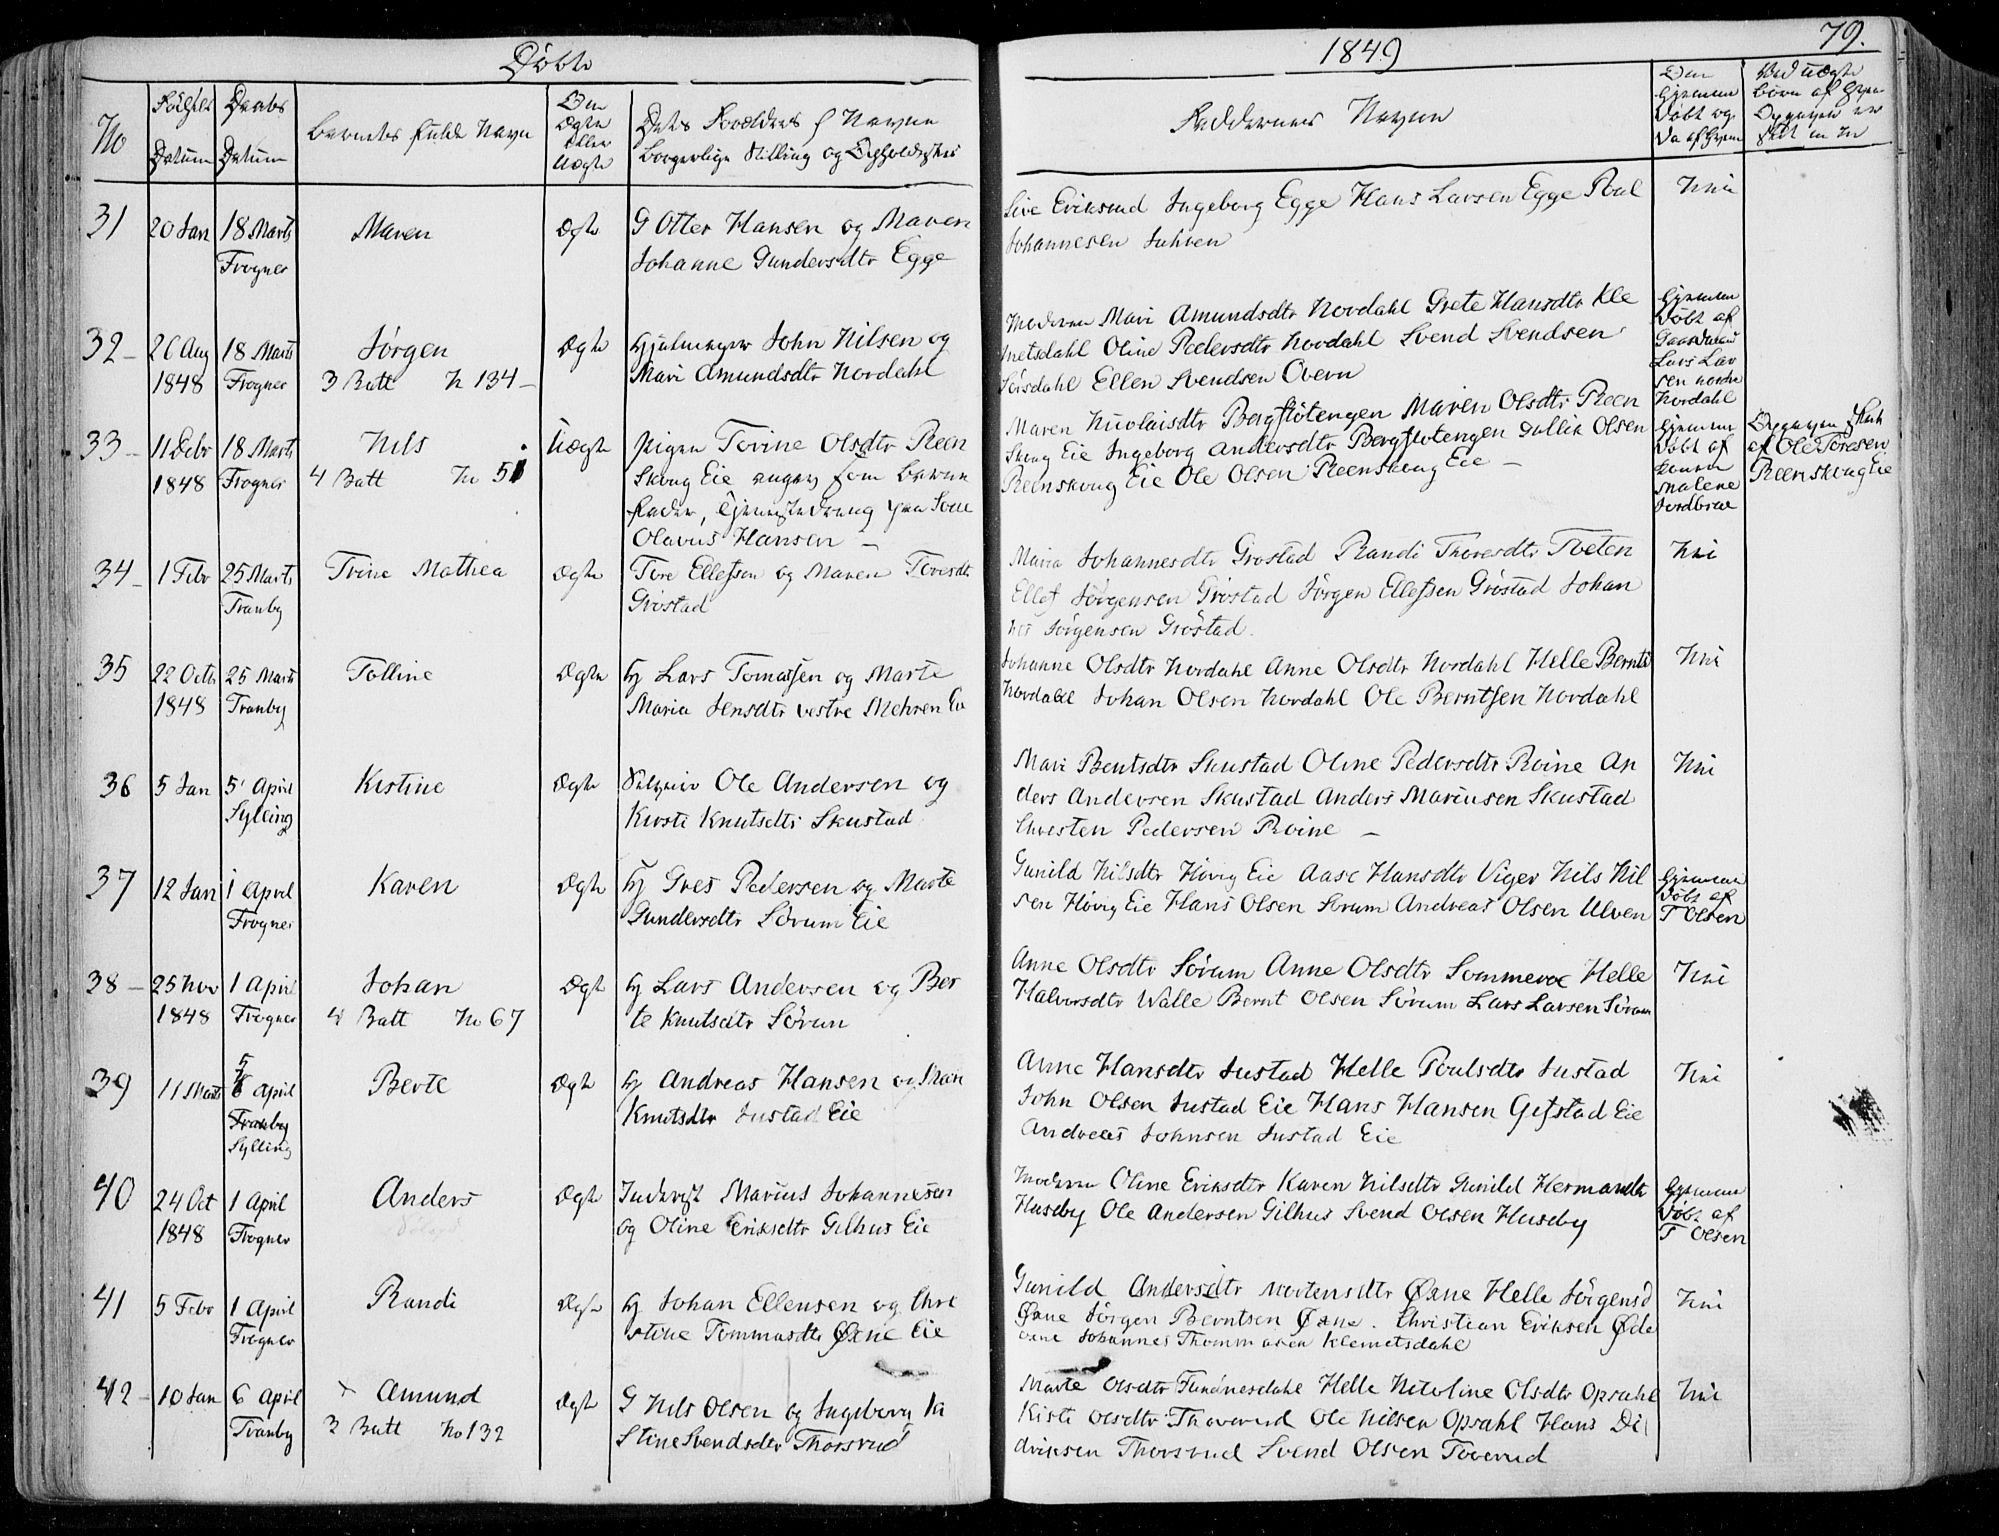 Døbte
1849
79.
No
Fødsels Datum
Daabs Datum
Barnets fulde Navn
Om Ægte eller Uægte
Dets Forældres Navne
Borgerlige Stilling og Opholdssted
Faddernes Navne
Om Hjemme Døbt og da af Hvem
31
20 Jan
18 Marts
Frogner
Maren
Ægte
G Otter Hansen og Maren
Johanne Gundersdtr Egge
Live Eriksrud Ingeborg Egge Hans Larsen Egge Poul
Johannesen
Nei
32
26 Aug
1848
18 Marts
Frogner
Jørgen
3 Batt N 134
Ægte
John Nilsen og
Mari Amundsdtr Nordahl
Moderen Mari Amundsdtr Nordahl Grete Hansdtr Kle
metsdahl Oline Pedersdtr Nordahl Svend Svendsen
Sørsdahl Ellen Svendsen Overn
Hjemme
Døbt af
Gaardmand
Lars Lar
sen nordre
Nordahl
33
11 Debr
1848
18 Marts
Frogner
Nils
4 Batt No 51
Uægte
Pigen Torine Olsdtr Reen
Skoug Eie angav som Barne
fader, Tjenestedreng paa
Olavus Hansen
Maren Nicolaisdtr Bergflötengen Maren Olsdtr Reen
Skoug Eie Ingeborg Andersdtr Bergflotengen Ollik Olsen
Reenskoug Eie Ole Olsen Reenskoug Eie
Hjemme
Døbt af
Malene
Jordbræk
af Ole Toresen
Reenskoug Eie
34
1 Febr
25 Marts
Tranby
Trine Mathea
Ægte
Tore Ellefsen og Maren Toresdtr
Gröstad
Maria Johannesdtr Grøstad Randi Thoresdtr Tveten
Ellef Jørgensen Grøstad Jørgen Ellefsen Gröstad Johan
nes Jørgensen Grøstad.
Nei
35
22 Octb
1848
25 Marts
Tranby
Tolline
Ægte
Hj Lars Tomassen og Marte
Maria Jensdtr vestre Mehren Eie
Johanne Olsdtr Nordahl Anne Olsdtr Nordahl Helle Bernts
Nordahl Johan Olsen Nordahl Ole Berntsen Nordahl
Nei
36
5 Jan
5 April
Sylling
Kistine
Ægte
Selveier Ole Andersen og
Kirsti Knutsdtr Skustad
Mari Bentsdtr Skustad Oline Pedersdtr Roine An
ders Andersen Skustad Anders Mariusen Skustad
Christen Pedersen Roine
Nei
37
12 Jan
1 April
Frogner
Karen
Ægte
Hj Gres Pedersen og Marte
Gundersdtr Sørum Eie
Gunild Nilsdtr Høvig Eie Aase Hansdtr Viger Nils Nil
sen Høvig Eie Hans Olsen Sørum Andreas Olsen Ulven
Hjemme
Døbt af
T Olsen
38
25 Nov
1848
1 April
Frogner
Johan
4 Batt No 67
Ægte
Hj Lars Andersen og Ber
te Knutsdtr Sørum
Anne Olsdtr Sørum Anne Olsdtr Sommeroe Helle
Halvorsdtr Walle Bernt Olsen Sørum Lars Larsen Sørum
Nei
39
11 Marts
5
6 April
Tranby
Sylling
Berte
Ægte
Hj Andreas Hansen og Mari
Knutsdtr Justad Eie
Anne Hansdtr Justad Helle Poulsdtr Justad
John Olsen Justad Eie Hans Hansen Gifstad Eie
Andreas Johnsen Justad Eie
Nei
40
24 Oct
1848
1 April
Frogner
Anders
Ægte
Inderst Marius Johannesen
og Oline Eriksdtr Gilhus Eie
Moderen Oline Eriksdtr Karen Nilsdtr Gunild Hermansdtr
Huseby Ole Andersen Gilhus Svend Olsen Huseby
Hjemme
Døbt af
T Olsen
41
5 Febr
1 April
Frogner
Randi
Ægte
Hj Johan Ellensen og Chri
stine Tommasdtr Øxne Eie
Gunild Andersdtr Mortensdtr Øxne Helle Jörgensd
Øxne Jörgen Berntsen Øxne. Christian Eriksen Øde
Johannes Thommasen Klemetsdahl
Nei
42
10 Jan
6 April
Tranby
Amund
3 Batt No 132
Ægte
G Nils Olsen og Ingeborg Ki
Stine Svendsdtr Thorsrud
Marte Olsdtr Tundnesdahl Helle Nicoline Olsdtr Opsahl
Kisti Olsdtr Thoverud Ole Nilsen Opsahl Hans Di
driksen Thorsrud Svend Olsen Toverud
Nei